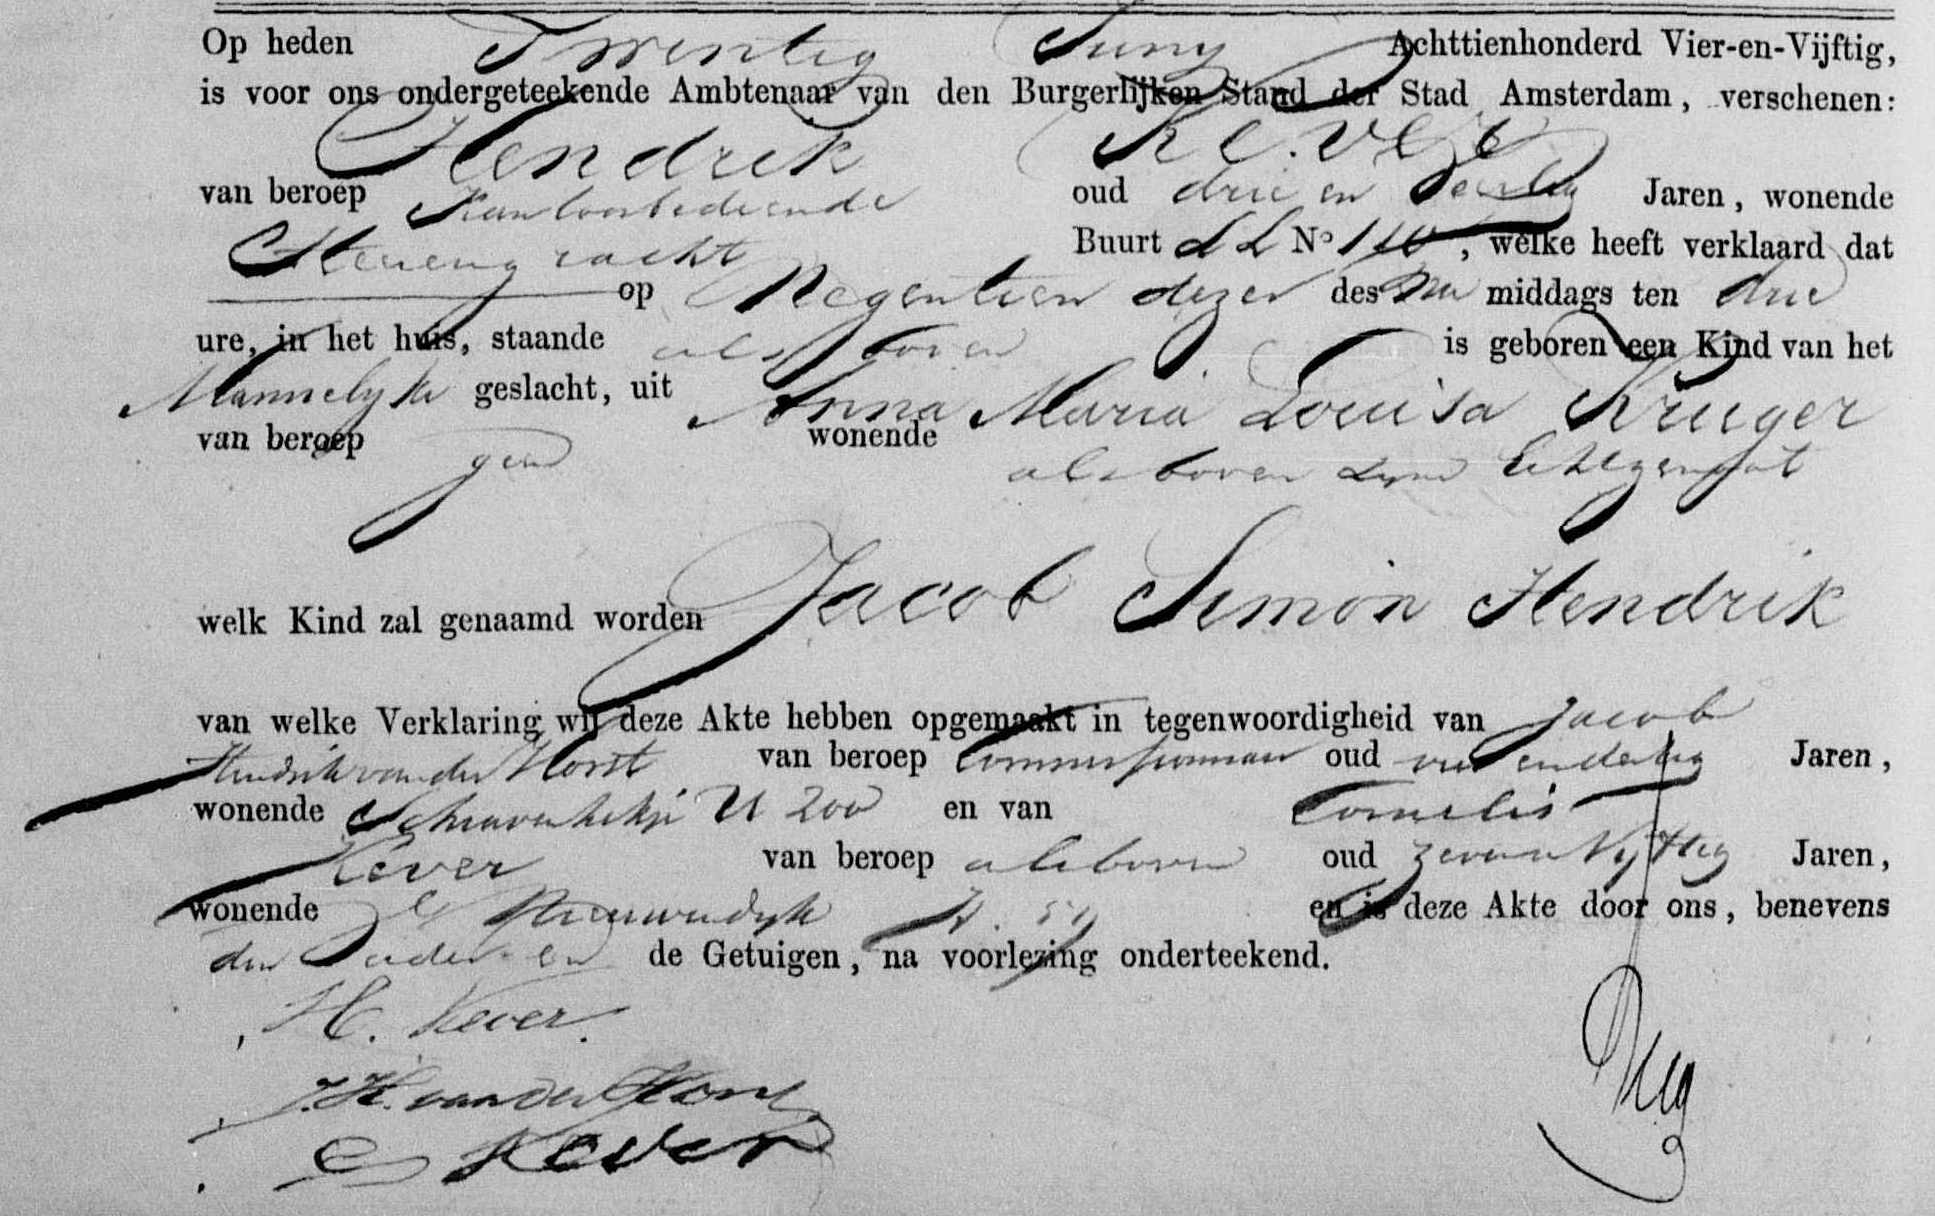 Op heden Twintig Juny Achttienhonderd Vier-en-Vijftig,
is voor ons ondergeteekende Ambtenaar van den Burgerlijken Stand der Stad Amsterdam, verschenen:
Hendrik Kever
van beroep Kantoorbediende oud drie en Jaren, wonende
Buurt LL No 110, welke heeft verklaard dat
op Negentien dezer des na middags ten drie
ure, in het huis, staande als boven is geboren een Kind van het
Mannelyke geslacht, uit Anna Maria Louisa Kruger
van beroep geen wonende als boven zyne Echtgenoot
welk Kind zal genaamd worden Jacob Simon Hendrik
van welke Verklaring wij deze Akte hebben opgemaakt in tegenwoordigheid van Jacob
Hendrik van der Horst van beroep oud vier en dertig Jaren,
wonende U 200 en van Cornelis
Kever van beroep als boven oud zeven en Vyftig Jaren,
wonende Nieuwendyk en is deze Akte door ons, benevens
den Vader en de Getuigen, na voorlezing onderteekend.
H. Kever.
J. H. van der Horst
C Kever